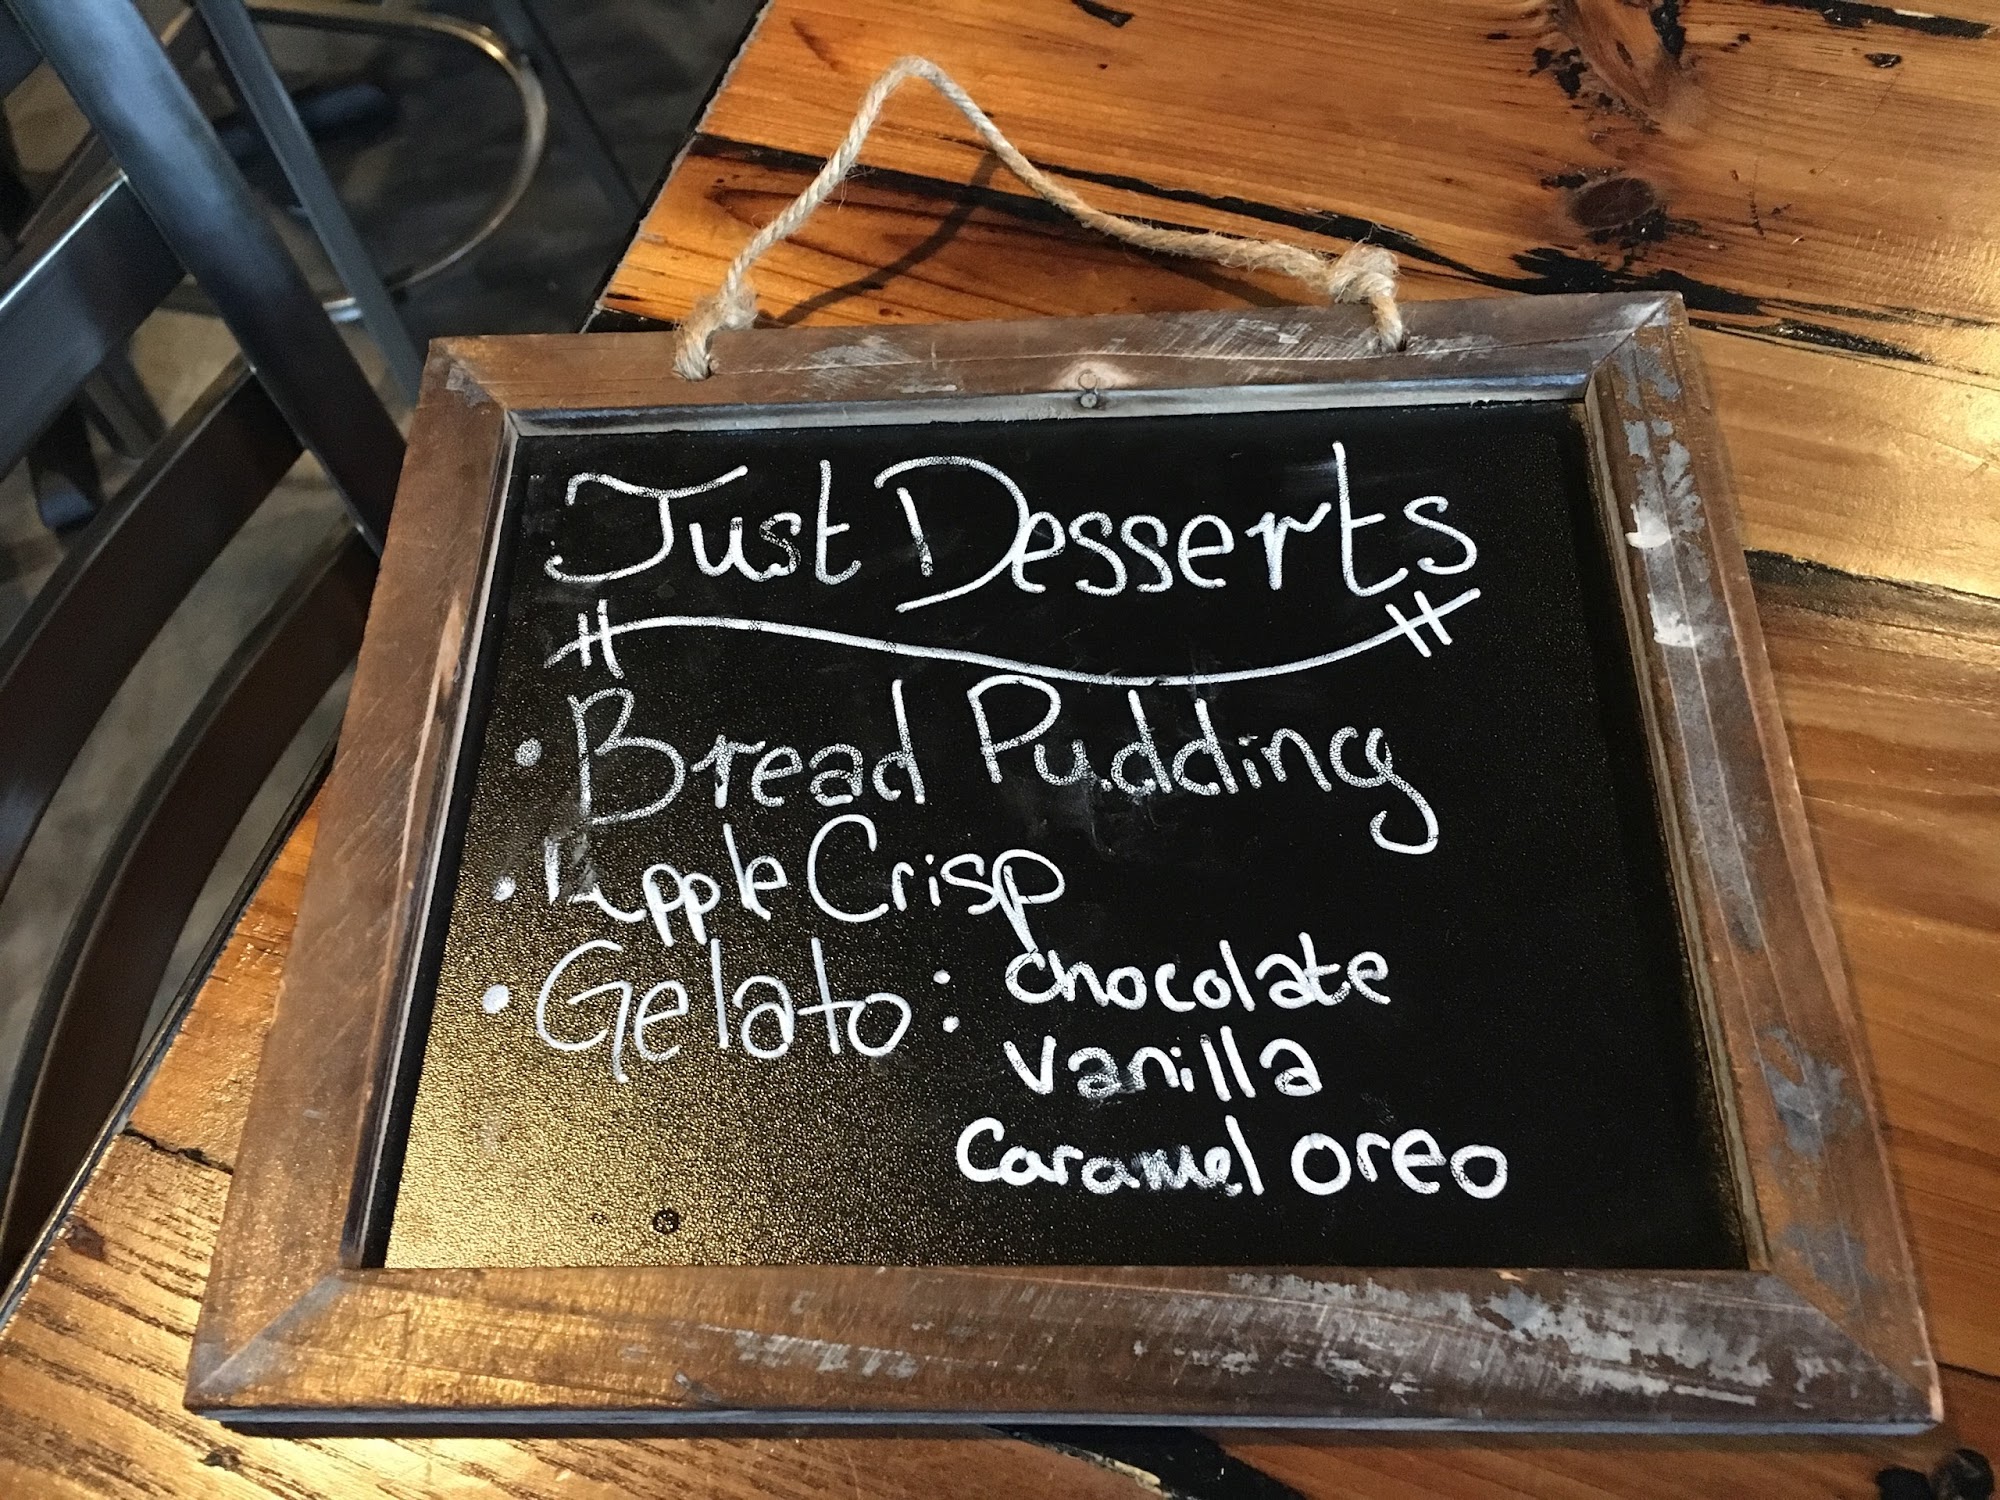 Just Desserts
• Bread Pudding
• Apple Crisp
• Gelato: chocolate
vanilla
caramel oreo